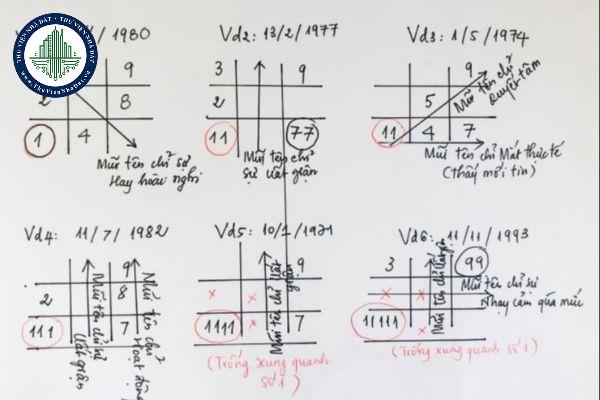 THƯ VIỆN NHÀ ĐẤT
www.ThuVienNhaDat.vn
/ 1980
9
2 8
1 4
Mũi tên chỉ sự
Hay hoài nghi
Vd2: 13/2/1977
3 9
2
11 77
Mũi tên chỉ
sự uất giận
Vd3: 1/5/1974
9
5
11 4 7
Mũi tên chỉ
Quyết tâm
Mũi tên chỉ Mất thực tế
(thấy mới tin)
Vd4: 11/7/1982
9
2 8
111 7
Mũi tên chỉ sự
Uất giận
Mũi tên chỉ
Hoạt động
Vd5: 10/1/1971
9
x
x
1111 x 7
Mũi tên chỉ Uất
giận
(Trống xung quanh
số 1)
Vd6: 11/11/1993
3 99
x x
11111 x
Mũi tên chỉ Uất
Mũi tên chỉ sự
Nhạy cảm quá mức
(Trống xung quanh số 1)